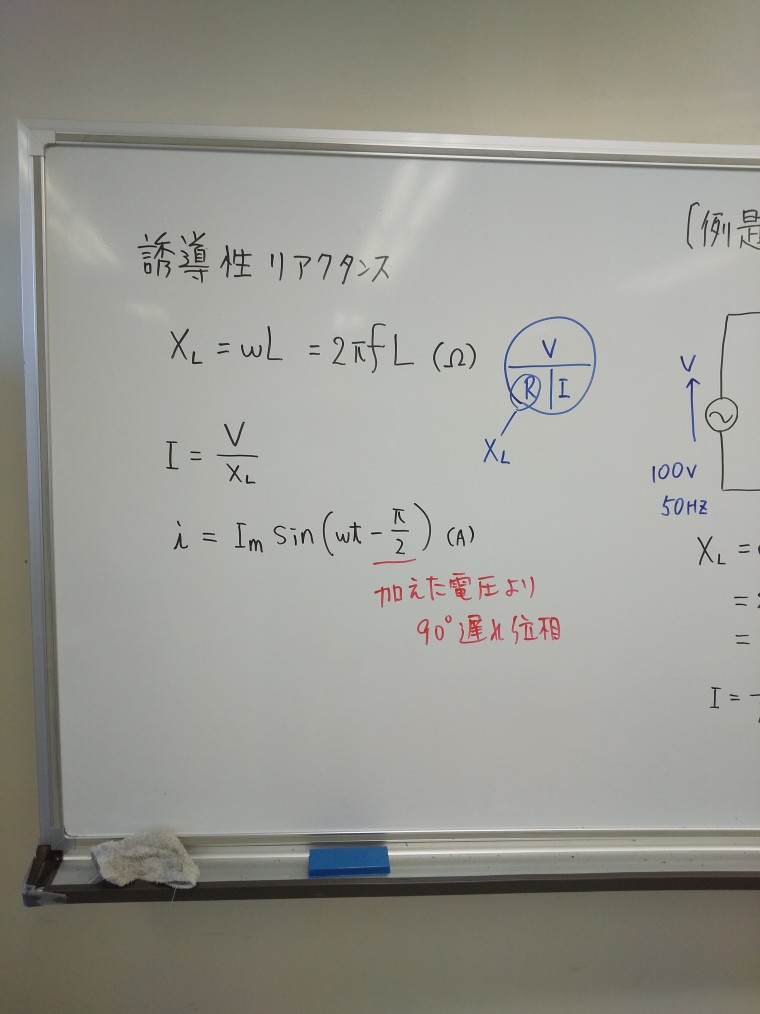 誘導性リアクタンス
X_L = ωL = 2πfL (Ω)
V
R I
X_L
I = V/X_L
i = I_m sin(ωt - π/2) (A)
加えた電圧より
90°遅れ位相
(例
V
100V
50Hz
X_L =
=
=
I =